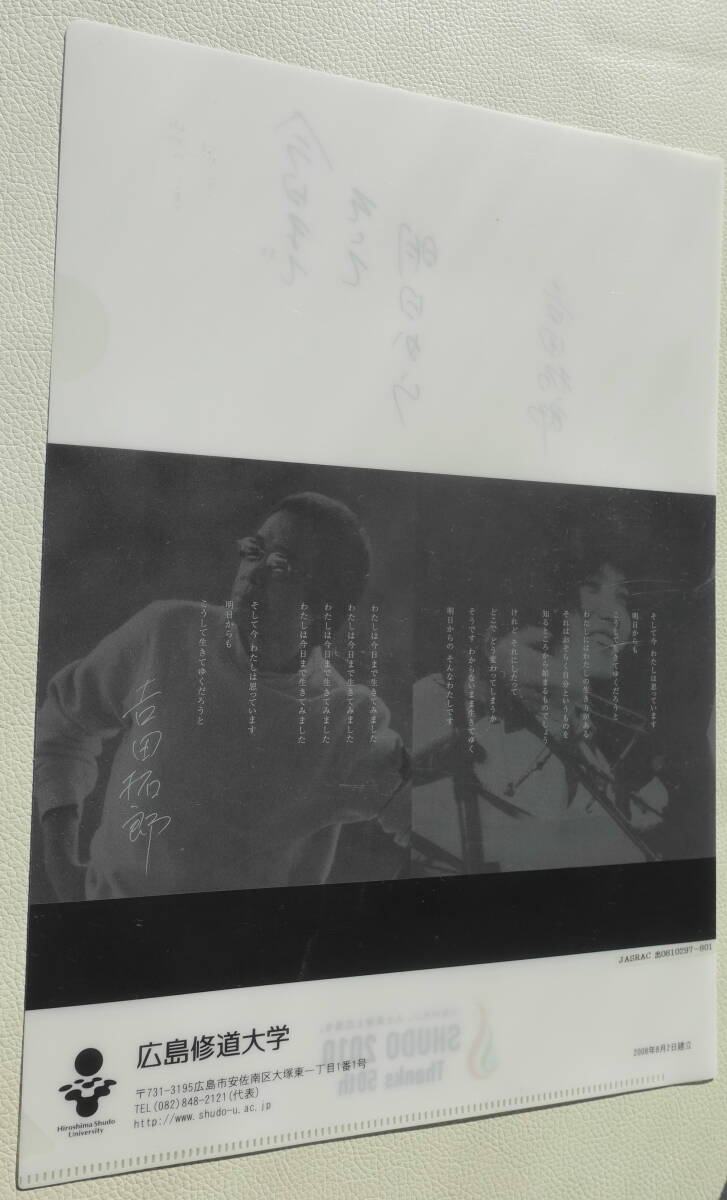 そして今 わたしは思っています
明日からも
こうして生きてゆくだろうと
わたしにはわたしの生き方がある
それはおそらく自分というものを
知るところから始まるものでしょう
けれど それにしたって
どこで どう変わってしまうか
そうです わからないまま生きてゆく
明日からの そんなわたしです
わたしは今日まで生きてみました
わたしは今日まで生きてみました
わたしは今日まで生きてみました
わたしは今日まで生きてみました
そして今 わたしは思っています
明日からも
こうして生きてゆくだろうと
吉田拓郎
JASRAC 出0610297-601
2006年8月2日建立
SHUDO 2010
Thanks 50th
広島修道大学
〒731-3195広島市安佐南区大塚東一丁目1番1号
TEL(082)848-2121(代表)
http://www.shudo-u.ac.jp
Hiroshima Shudo
University